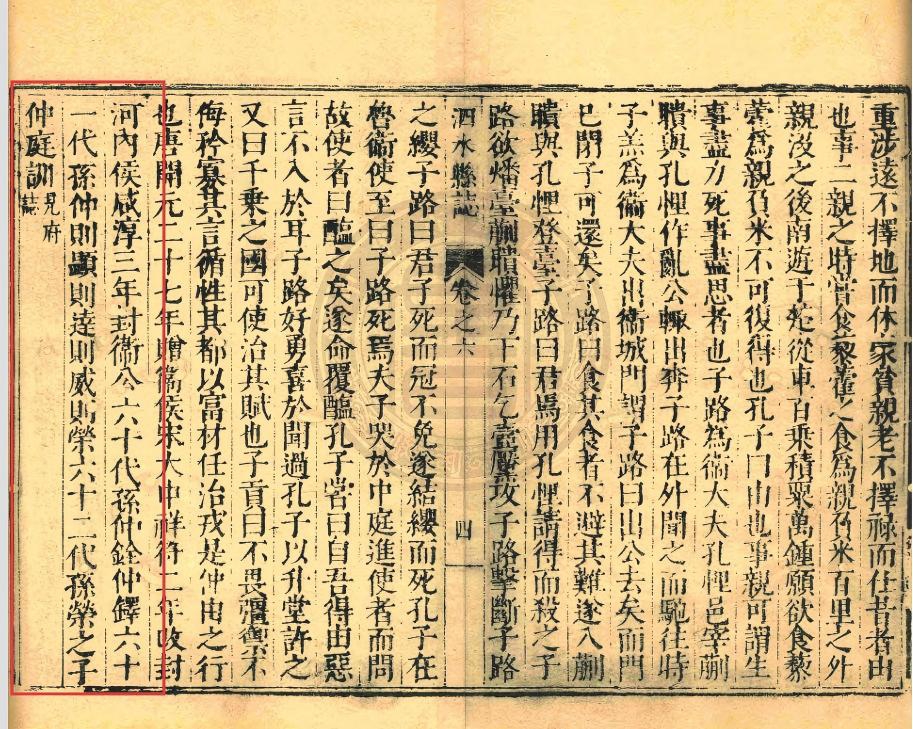 重涉遠不擇地而休家貧親老不擇祿而仕昔者由
也事二親之時嘗食藜藿之食爲親負米百里之外
親沒之後南遊于楚從車百乘積粟萬鍾願欲食藜
藿爲親負米不可復得也孔子曰由也事親可謂生
事盡力死事盡思者也子路爲衞大夫孔悝邑宰蒯
聵與孔悝作亂公輒出奔子路在外聞之而馳往時
子羔爲衞大夫出衞城門謂子路曰出公去矣而門
已閉子可還矣子路曰食其食者不避其難遂入蒯
聵與孔悝登臺子路曰君焉用孔悝請得而殺之子
路欲燔臺蒯聵懼乃下石乞壺黶攻子路擊斷子路
泗水縣誌 卷之六 四
之纓子路曰君子死而冠不免遂結纓而死孔子在
魯衞使至曰子路死焉夫子哭於中庭進使者而問
故使者曰醢之矣遂命覆醢孔子嘗曰自吾得由惡
言不入於耳子路好勇喜於聞過孔子以升堂許之
又曰千乘之國可使治其賦也子貢曰不畏彊禦不
侮矜寡其言循性其都以富材任治戎是仲由之行
也唐開元二十七年贈衞侯宋大中祥符二年改封
河內侯咸淳三年封衞公六十代孫仲銓仲鐸六十
一代孫仲則顯則達則威則榮六十二代孫榮之子
仲庭訓見府誌